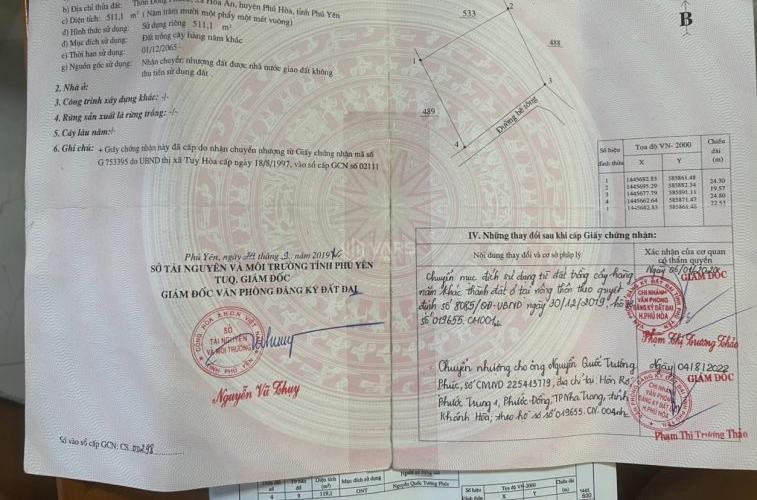 b) Địa chỉ thửa đất: Hòa An, huyện Phú Hòa, tỉnh Phú Yên
c) Diện tích: 511,1 m² (Năm trăm mười một phẩy một mét vuông)
d) Hình thức sử dụng: Sử dụng riêng 511,1 m²
đ) Mục đích sử dụng: Đất trồng cây hàng năm khác
e) Thời hạn sử dụng: 01/12/2065
g) Nguồn gốc sử dụng: Nhận chuyển nhượng đất được nhà nước giao đất không
thu tiền sử dụng đất.
2. Nhà ở:
3. Công trình xây dựng khác: -/-
4. Rừng sản xuất là rừng trồng: -/-
5. Cây lâu năm:-/-
6. Ghi chú: + Giấy chứng nhận này đã cấp do nhận chuyển nhượng từ Giấy chứng nhận mã số
G 753395 do UBND thị xã Tuy Hòa cấp ngày 18/8/1997, vào sổ cấp GCN số 02111
Phú Yên, ngày năm 2019
SỞ TÀI NGUYÊN VÀ MÔI TRƯỜNG TỈNH PHÚ YÊN
TUQ. GIÁM ĐỐC
GIÁM ĐỐC VĂN PHÒNG ĐĂNG KÝ ĐẤT ĐAI
SỞ
TÀI NGUYÊN
VÀ MÔI TRƯỜNG
TỈNH PHÚ YÊN
Nguyễn Vũ Thụy
Số vào sổ cấp GCN: CS 00298
VARS
B
533
2
488
1
3
489
4
Đường bê tông
Số hiệu đỉnh thửa
Tọa độ VN- 2000
Chiều dài (m)
X Y
1 1445682.83 585861.48
24.30
2 1445695.29 585882.34
19.57
3 1445677.79 585891.11
24.80
4 1445662.64 585871.47
22.53
1 1445682.83 585861.48
IV. Những thay đổi sau khi cấp Giấy chứng nhận:
Nội dung thay đổi và cơ sở pháp lý
Xác nhận của cơ quan
có thẩm quyền
Chuyển mục đích sử dụng từ đất trồng cây hàng
năm khác thành đất ở tại nông thôn theo quyết
định số 8085/QĐ-UBND ngày 30/12/2019, hồ sơ
số 019655.CM001
Ngày 06/01/2020
GIÁM ĐỐC
CHI NHÁNH
VĂN PHÒNG
ĐĂNG KÝ ĐẤT ĐAI
H.PHÚ HÒA
Phạm Thị Trương Thảo
- Chuyển nhượng cho ông Nguyễn Quốc Trường
Phúc, số CMND 225413779, địa chỉ tại: Hòn Rớ,
Phước Trung 1, Phước Đồng, TP Nha Trang, tỉnh
Khánh Hòa, theo hồ sơ số 019655.CN.004
Ngày 04/8/2022
GIÁM ĐỐC
CHI NHÁNH
VĂN PHÒNG
ĐĂNG KÝ ĐẤT ĐAI
H.PHÚ HÒA
Phạm Thị Trương Thảo
Diện tích (m²) Mục đích sử dụng
Số hiệu Tọa độ VN-2000 Chiều dài
4 9 ONT Nguyễn Quốc Tường Phúc X Y